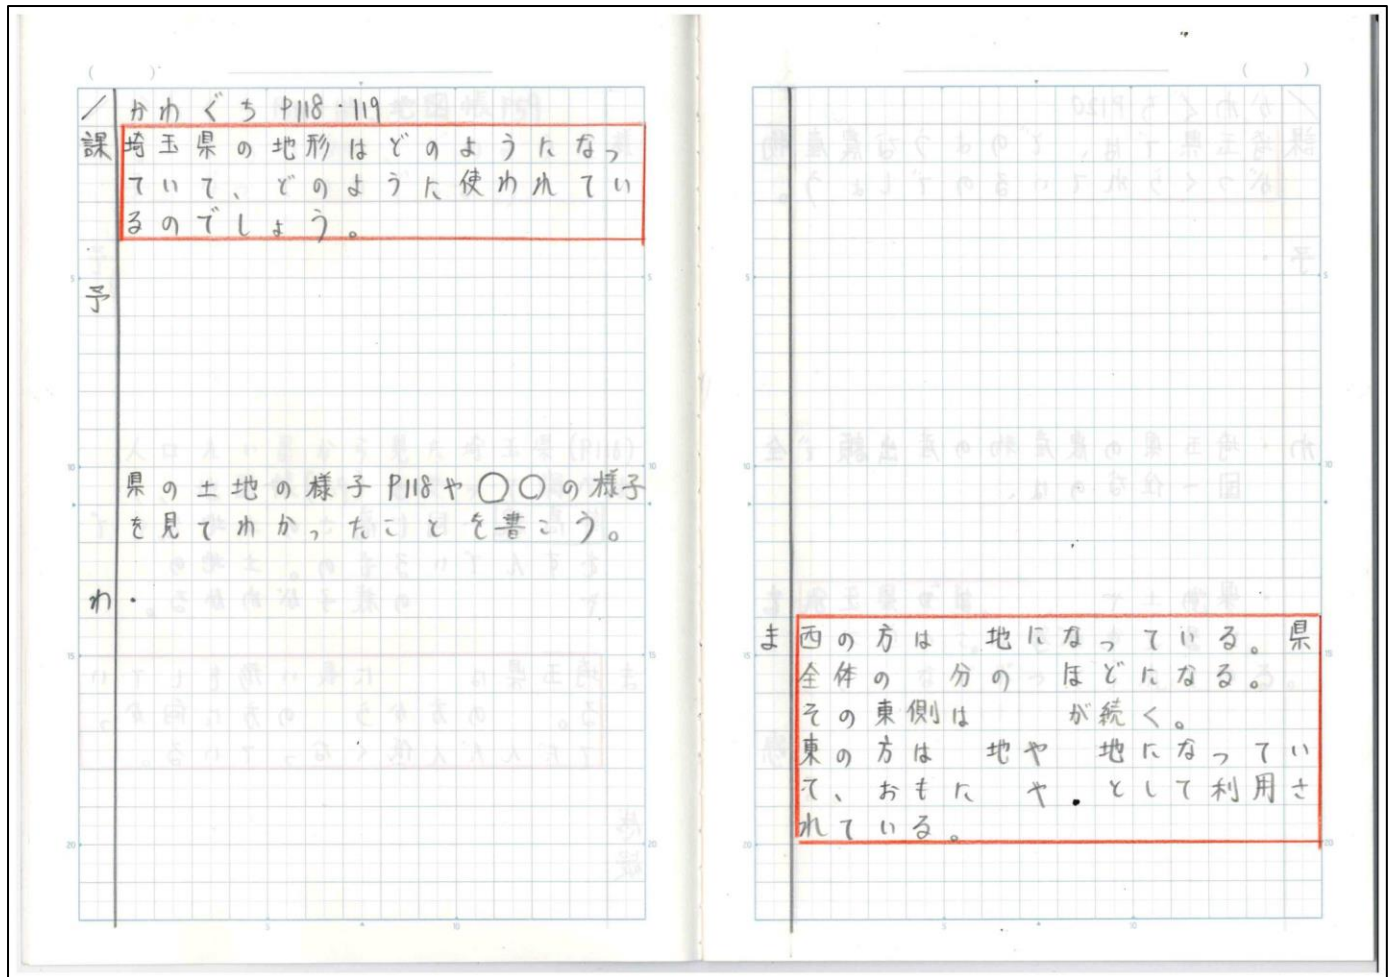 ／ かわぐち P118・119
課 埼玉県の地形はどのようになっ
ていて、どのように使われてい
るのでしょう。
予
県の土地の様子P118や〇〇の様子
を見てわかったことを書こう。
わ ・
ま 西の方は　地になっている。県
全体の　分の　ほどになる。
その東側は　　が続く。
東の方は　地や　地になってい
て、おもに　や　として利用さ
れている。